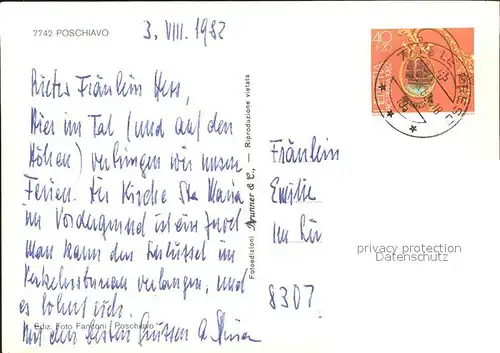 7742 POSCHIAVO
3. VIII. 1982
Liebes Fräulein Hess,
Hier im Tal (und auf den
Höhen) verbringen wir unsere
Ferien. Die Kirche Sta Maria
im Vordergrund ist ein Juwel
Man kann den Schlüssel im
Verkehrsbureau verlangen, und
es lohnt sich.
Mit den besten Grüssen
Ediz. Foto Fanconi - Poschiavo
Fotoedizioni Brunner & C., — Riproduzione vietata
40
+20
HELVETIA
LE PRESE
Fräulein
Emilie
Im
8307
privacy protection
Datenschutz